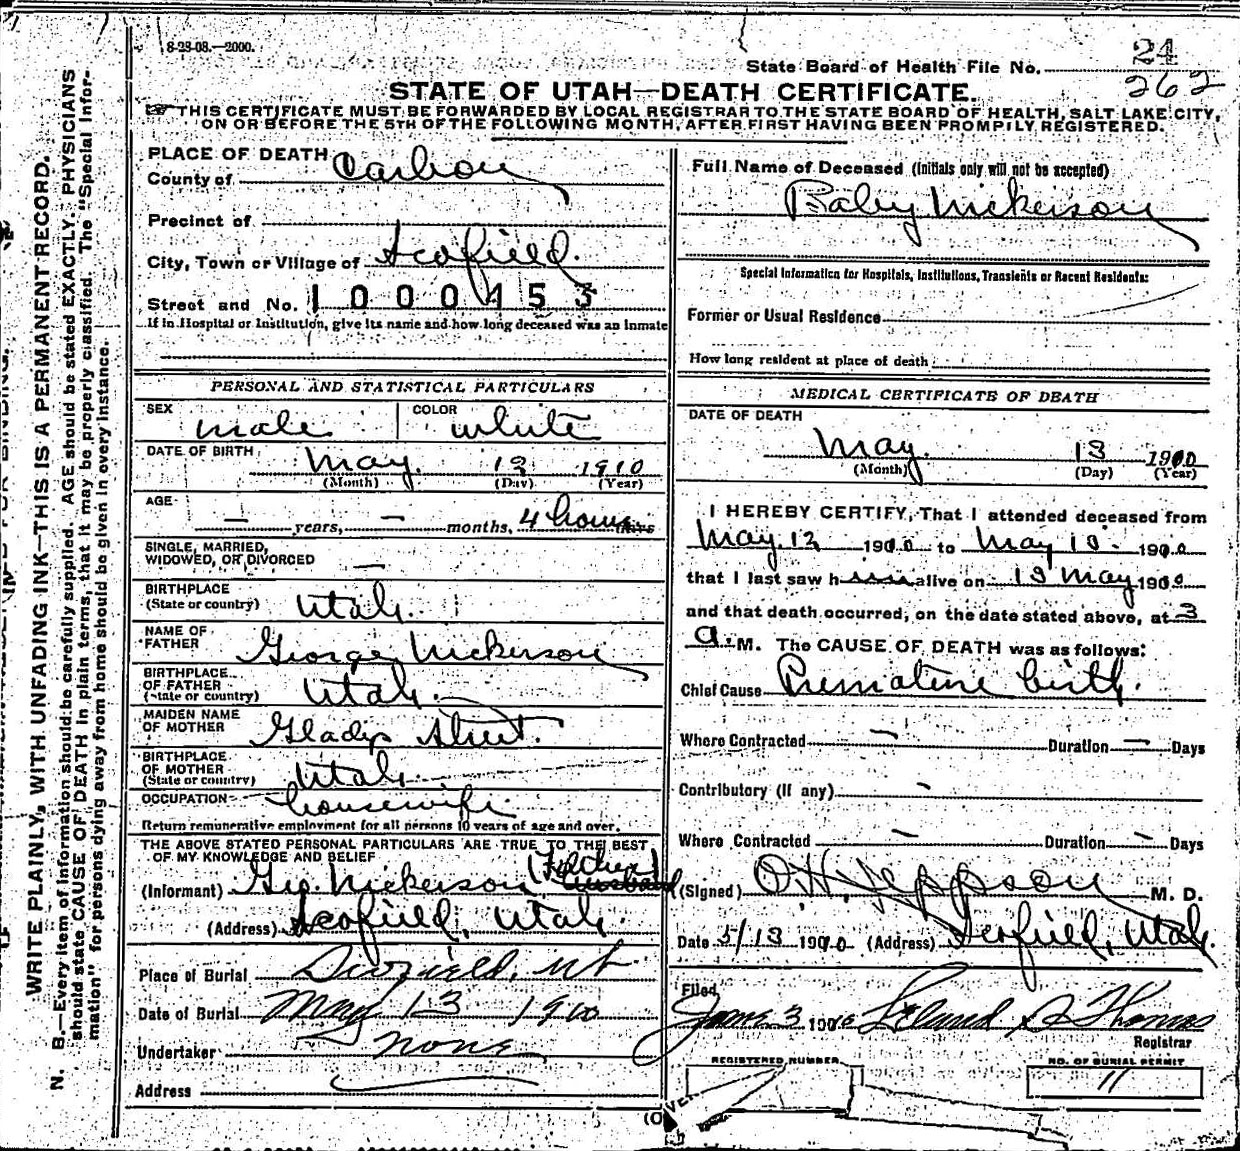 8-23-08.—2000.
State Board of Health File No. 24
262
STATE OF UTAH—DEATH CERTIFICATE
THIS CERTIFICATE MUST BE FORWARDED BY LOCAL REGISTRAR TO THE STATE BOARD OF HEALTH, SALT LAKE CITY,
ON OR BEFORE THE 5TH OF THE FOLLOWING MONTH, AFTER FIRST HAVING BEEN PROMPTLY REGISTERED.
WRITE PLAINLY, WITH UNFADING INK—THIS IS A PERMANENT RECORD.
N. B.—Every item of information should be carefully supplied. AGE should be stated EXACTLY. PHYSICIANS
should state CAUSE OF DEATH in plain terms, that it may be properly classified. The "Special Infor-
mation" for persons dying away from home should be given in every instance.
PLACE OF DEATH
County of Carbon
Precinct of
City, Town or Village of Scofield.
Street and No. 1000453
If in Hospital or Institution, give its name and how long deceased was an Inmate
PERSONAL AND STATISTICAL PARTICULARS
SEX male COLOR white
DATE OF BIRTH May. 13 1910
(Month) (Day) (Year)
AGE — years, — months, 4 hours days
SINGLE, MARRIED,
WIDOWED, OR DIVORCED —
BIRTHPLACE
(State or country) Utah.
NAME OF
FATHER George Nickerson
BIRTHPLACE
OF FATHER
(State or country) Utah.
MAIDEN NAME
OF MOTHER Gladys
BIRTHPLACE
OF MOTHER
(State or country) Utah
OCCUPATION housewife
Return remunerative employment for all persons 10 years of age and over.
THE ABOVE STATED PERSONAL PARTICULARS ARE TRUE TO THE BEST
OF MY KNOWLEDGE AND BELIEF
(Informant) Geo. Nickerson (Father) husband
(Address) Scofield, Utah.
Place of Burial Scofield, Ut
Date of Burial May 13 1910
Undertaker none
Address
Full Name of Deceased (Initials only will not be accepted)
Baby Nickerson
Special Information for Hospitals, Institutions, Transients or Recent Residents:
Former or Usual Residence
How long resident at place of death
MEDICAL CERTIFICATE OF DEATH
DATE OF DEATH
May. 13 1910
(Month) (Day) (Year)
I HEREBY CERTIFY, That I attended deceased from
May 13 1910 to May 13. 1910
that I last saw h alive on 13 May 1910
and that death occurred, on the date stated above, at 3
a. M. The CAUSE OF DEATH was as follows:
Chief Cause Premature birth.
Where Contracted — Duration — Days
Contributory (If any) -
Where Contracted — Duration — Days
(Signed) O.H. Jeppson M. D.
Date 5/13 1910 (Address) Scofield, Utah.
Filed
June 3 1910 Leland S Thomas
Registrar
REGISTERED NUMBER
NO. OF BURIAL PERMIT
11
(OVER